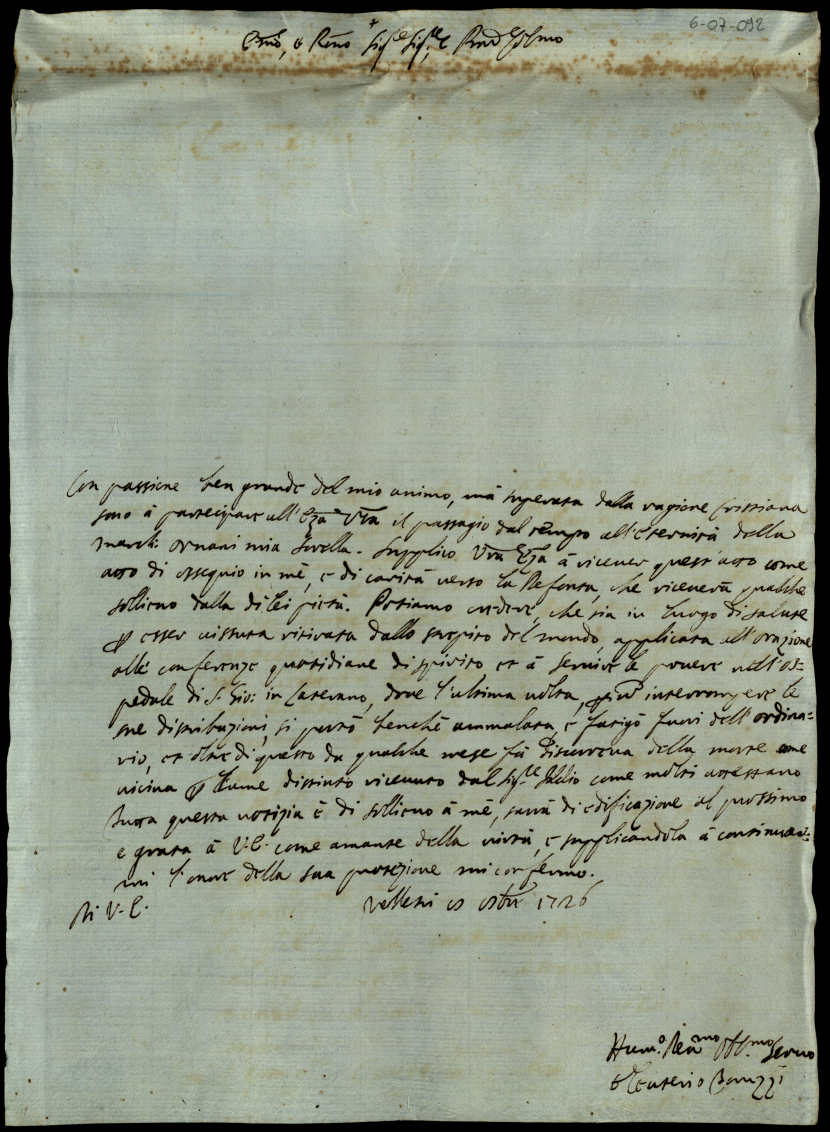 6-07-092
+
Emō, e Remō Sig.re Sig.re, e Prōn Colmo
Con passione ben grande del mio animo, mà superata dalla ragione Cristiana
sono à partecipare all'Ezā Vrā il passagio dal tempo all'Eternità della
March: Ornani mia Sorella. Supplico Vrā Ezā à ricever quest'atto come
atto di ossequio in mè, e di carità verso la Defonta, che riceverà qualche
sollievo dalla di lei pietà. Possiamo credere, che sia in luogo di salute
ꝑ esser vissuta ritirata dallo strepito del mondo, applicata all'orazione
alle conferenze quotidiane di spirito et à servire le povere nell'os=
pedale di S. Gio: in Laterano, dove l'ultima volta, ꝑ non interrompere le
sue distribuzioni, si portò benchè ammalata, e fatigò fuori dell'ordina=
rio, et oltre di questo da qualche mese fà discorreva della morte come
vicina ꝑ lume distinto ricevuto dal Sig.re Iddio come molti attestano
Tutta questa notizia è di sollievo à mè, sarrà di edificazione al prossimo
e grata à V.E. come amante della virtù, e supplicandola à continuar=
mi l'onore della sua protezione mi confermo.
Di V. E. Velletri 1726
Hum.o Dev.mo Obl.mo Servo
Eleuterio